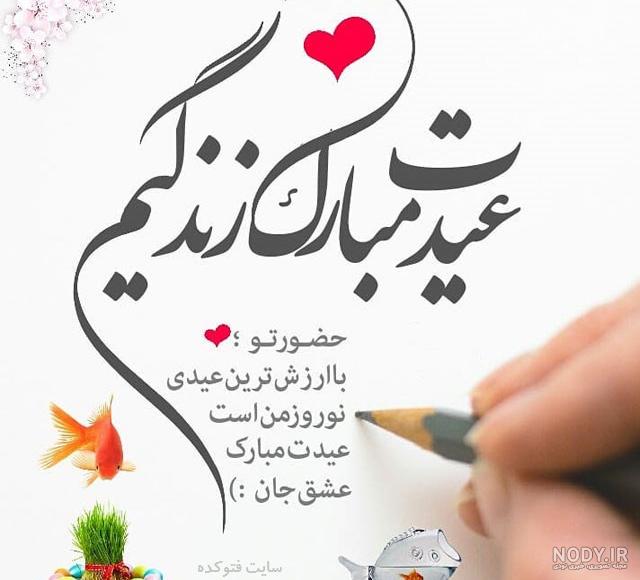 عیدت مبارک زندگیم
حضور تو ؛
با ارزش‌ترین عیدی
نوروز من است
عیدت مبارک
عشق جان :)
سایت فتوکده
NODY.IR
مجله تصویری، خبری نودی